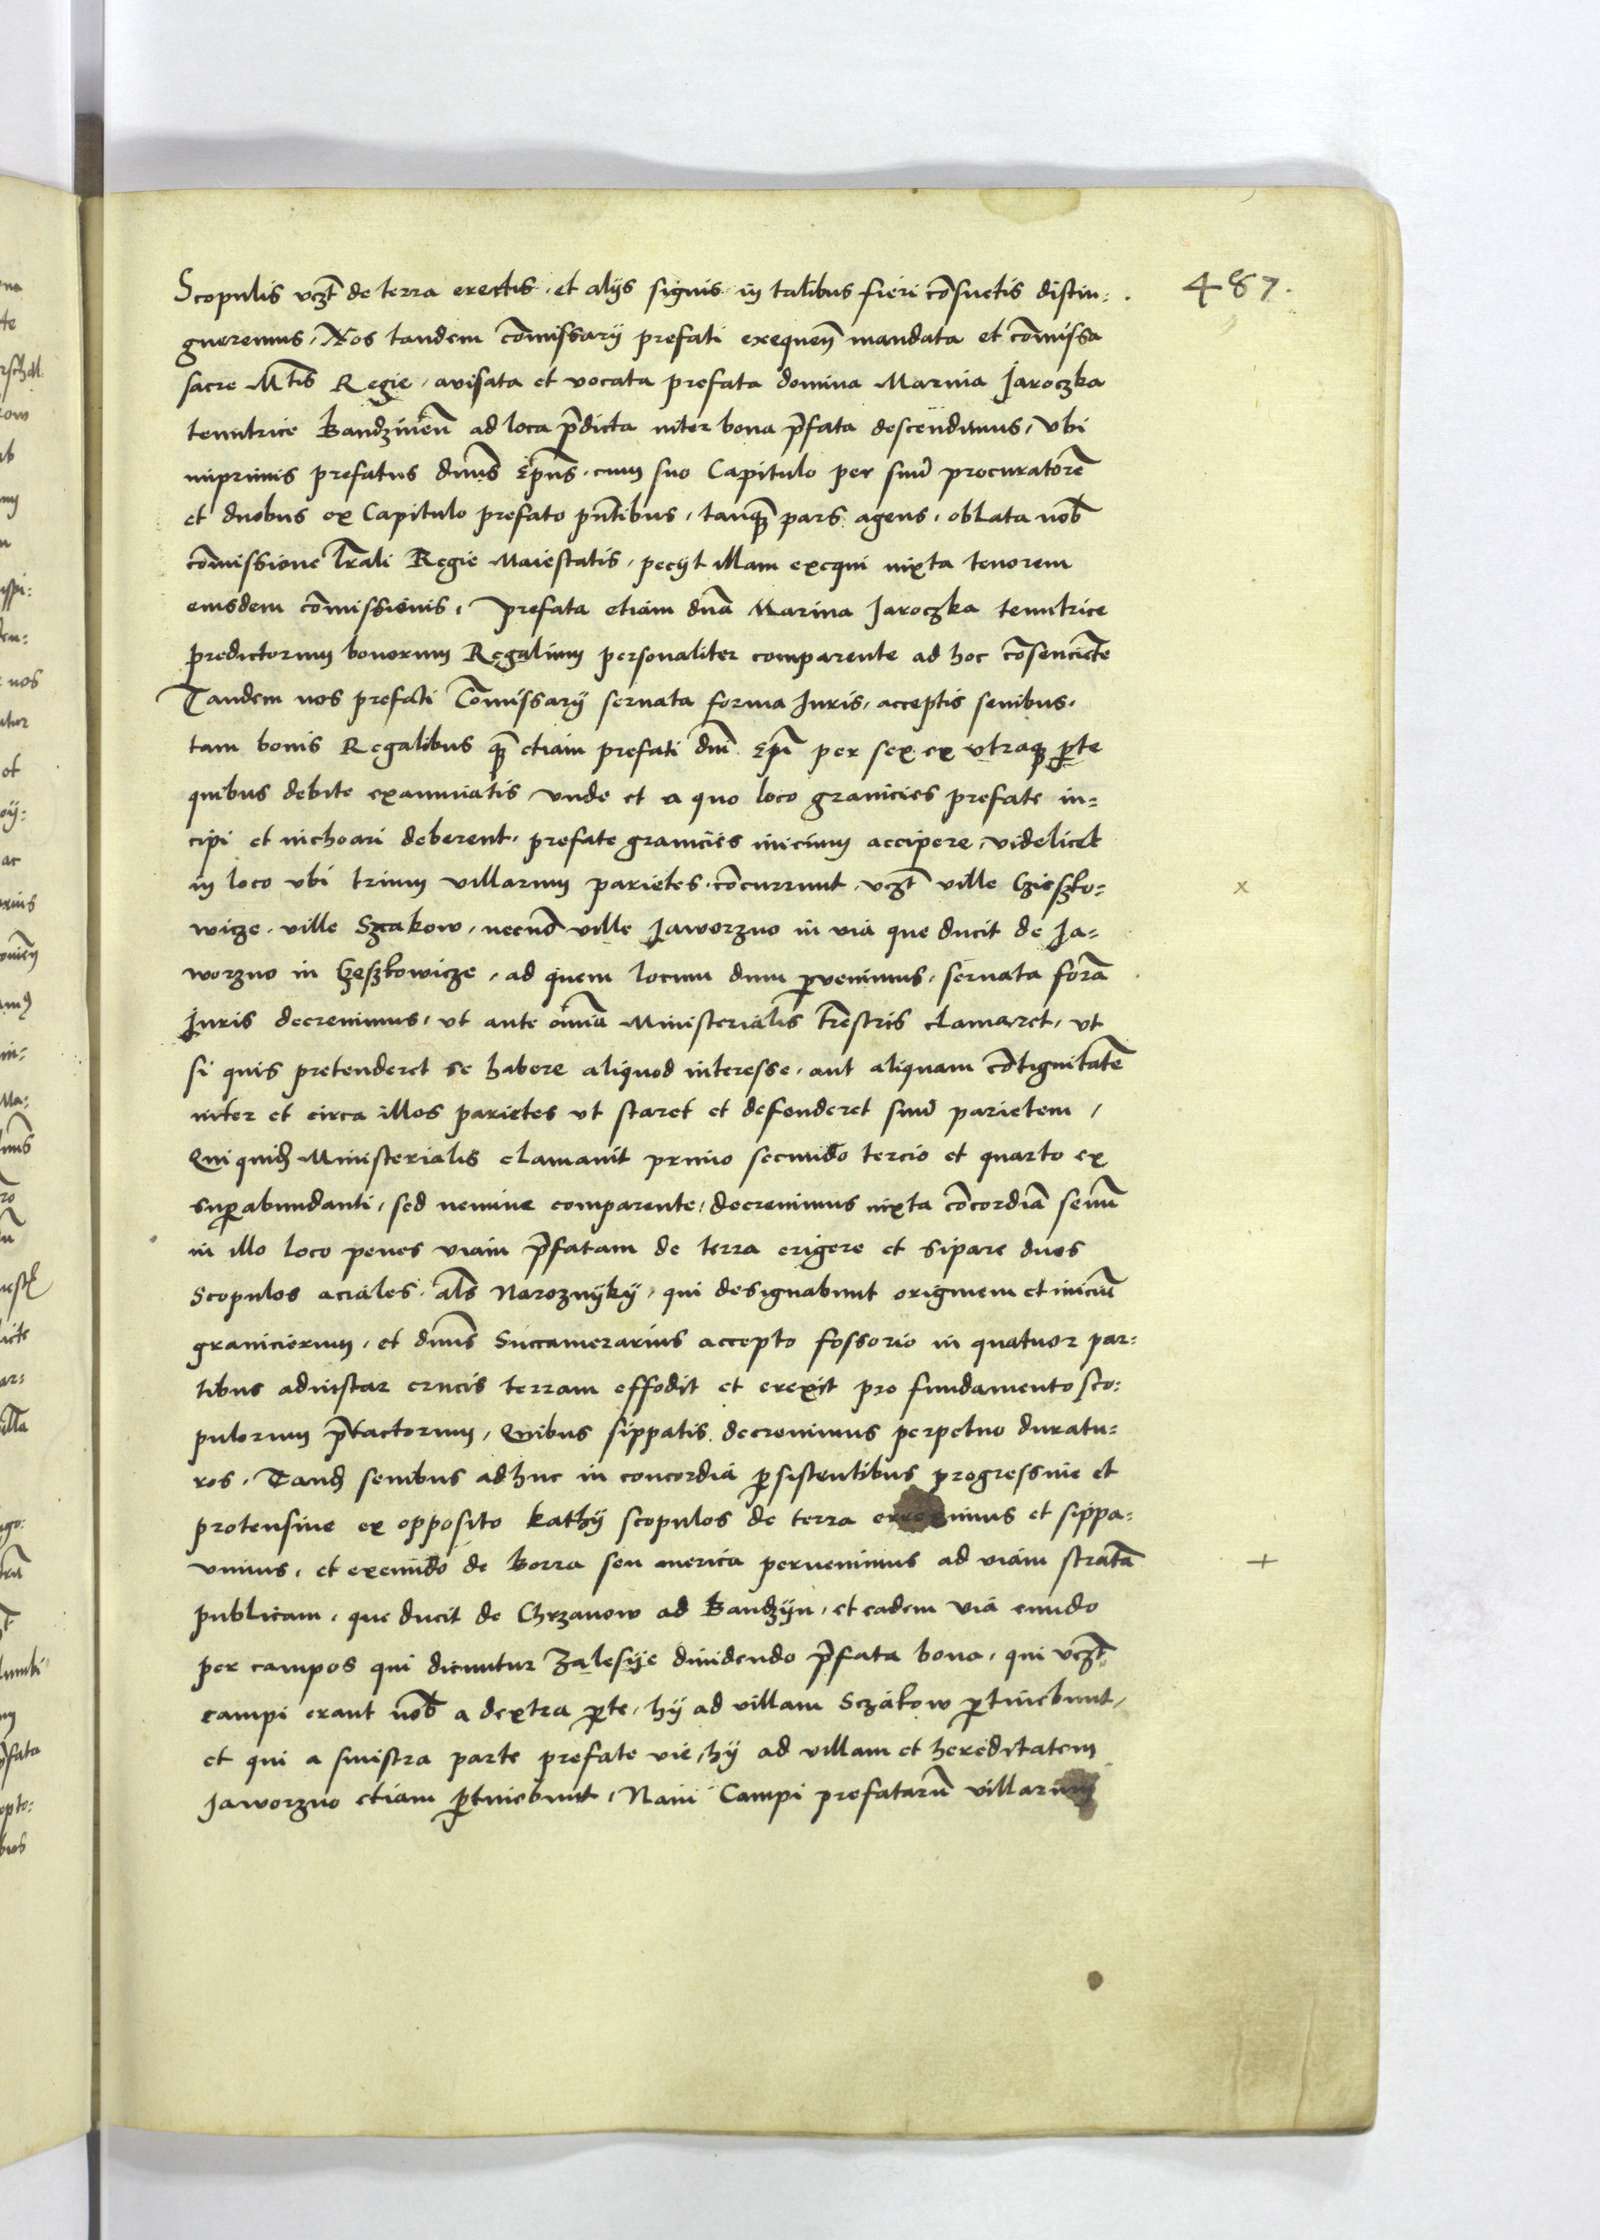 487.
Scopulis vczt de terra erectis, et alijs signis in talibus fieri cōsuetis distin:
gueremus, Nos tandem cōmissarij prefati exequeñ mandata et cōmissa
sacre Mtis Regie, avisata et vocata prefata domina Marina Jaroczka
tenutrice Bandzineñ ad loca p̄dicta inter bona p̄fata descendimus, Vbi
inprimis prefatus dnus Epūs cum suo Capitulo per suū procuratorē
et duobus ex Capitulo prefato pn̄tibus, tanq̄ pars agens, oblata nob̄
cōmissione l̄rali Regie Maiestatis, pecijt illam exequi iuxta tenorem
eiusdem cōmissionis, Prefata etiam dnā Marina Jaroczka tenutrice
predictorum bonorum Regalium personaliter comparente ad hoc cōsenciēte
Tandem nos prefati Cōmissarij seruata forma Juris, acceptis senibus,
tam bonis Regalibus q̄ etiam prefati dni Epi per sex ex vtraq̄ p̄te
quibus debite examinatis, vnde et a quo loco granicies prefate in=
cipi et inchoari deberent, prefate granicies inicium accipere, videlicet
in loco vbi trium villarum parietes cōcurrunt, vczt ville Czieszko=
wicze, ville Szcakow, necnō ville Jaworzno in via que ducit de Ja=
worzno in Czeszkowicze, ad quem locum dum p̄venimus, seruata forā
Juris decreuimus, vt ante om̄ia Ministerialis tr̄estris clamaret, vt
si quis pretenderet se habere aliquod interesse, aut aliquam cōtiguitatē
inter et circa illos parietes vt staret et defenderet suū parietem,
Qui quid̄ Ministerialis clamauit primo secundo tercio et quarto ex
sup̄abundanti, sed nemine comparente, decreuimus iuxta cōcordiā senū
in illo loco penes viam p̄fatam de terra erigere et sipare duos
Scopulos aciales als Naroznyky, qui designabunt originem et iniciū
granicierum, et dnus Succamerarius accepto fossorio in quatuor par:
tibus adinstar crucis terram effodit et erexit pro fundamento sco:
pulorum p̄tactorum, Quibus sippatis decreuimus perpetuo duratu=
ros, Tand̄ senibus adhuc in concordia p̄sistentibus progressiue et
protensiue ex opposito kathij scopulos de terra erreximus et sippa:
uimus, et exeundo de Borra seu merica peruenimus ad viam stratā
publicam, que ducit de Chrzanow ad Bandzijn, et eadem via eundo
per campos qui dicuntur Zalesije diuidendo p̄fata bona, qui vczt
campi erant nob̄ a dextra p̄te, hij ad villam Sczakow p̄tinebunt,
et qui a sinistra parte prefate vie, hij ad villam et hereditatem
Jaworzno etiam p̄tinebunt, Nam Campi prefatarū villarum